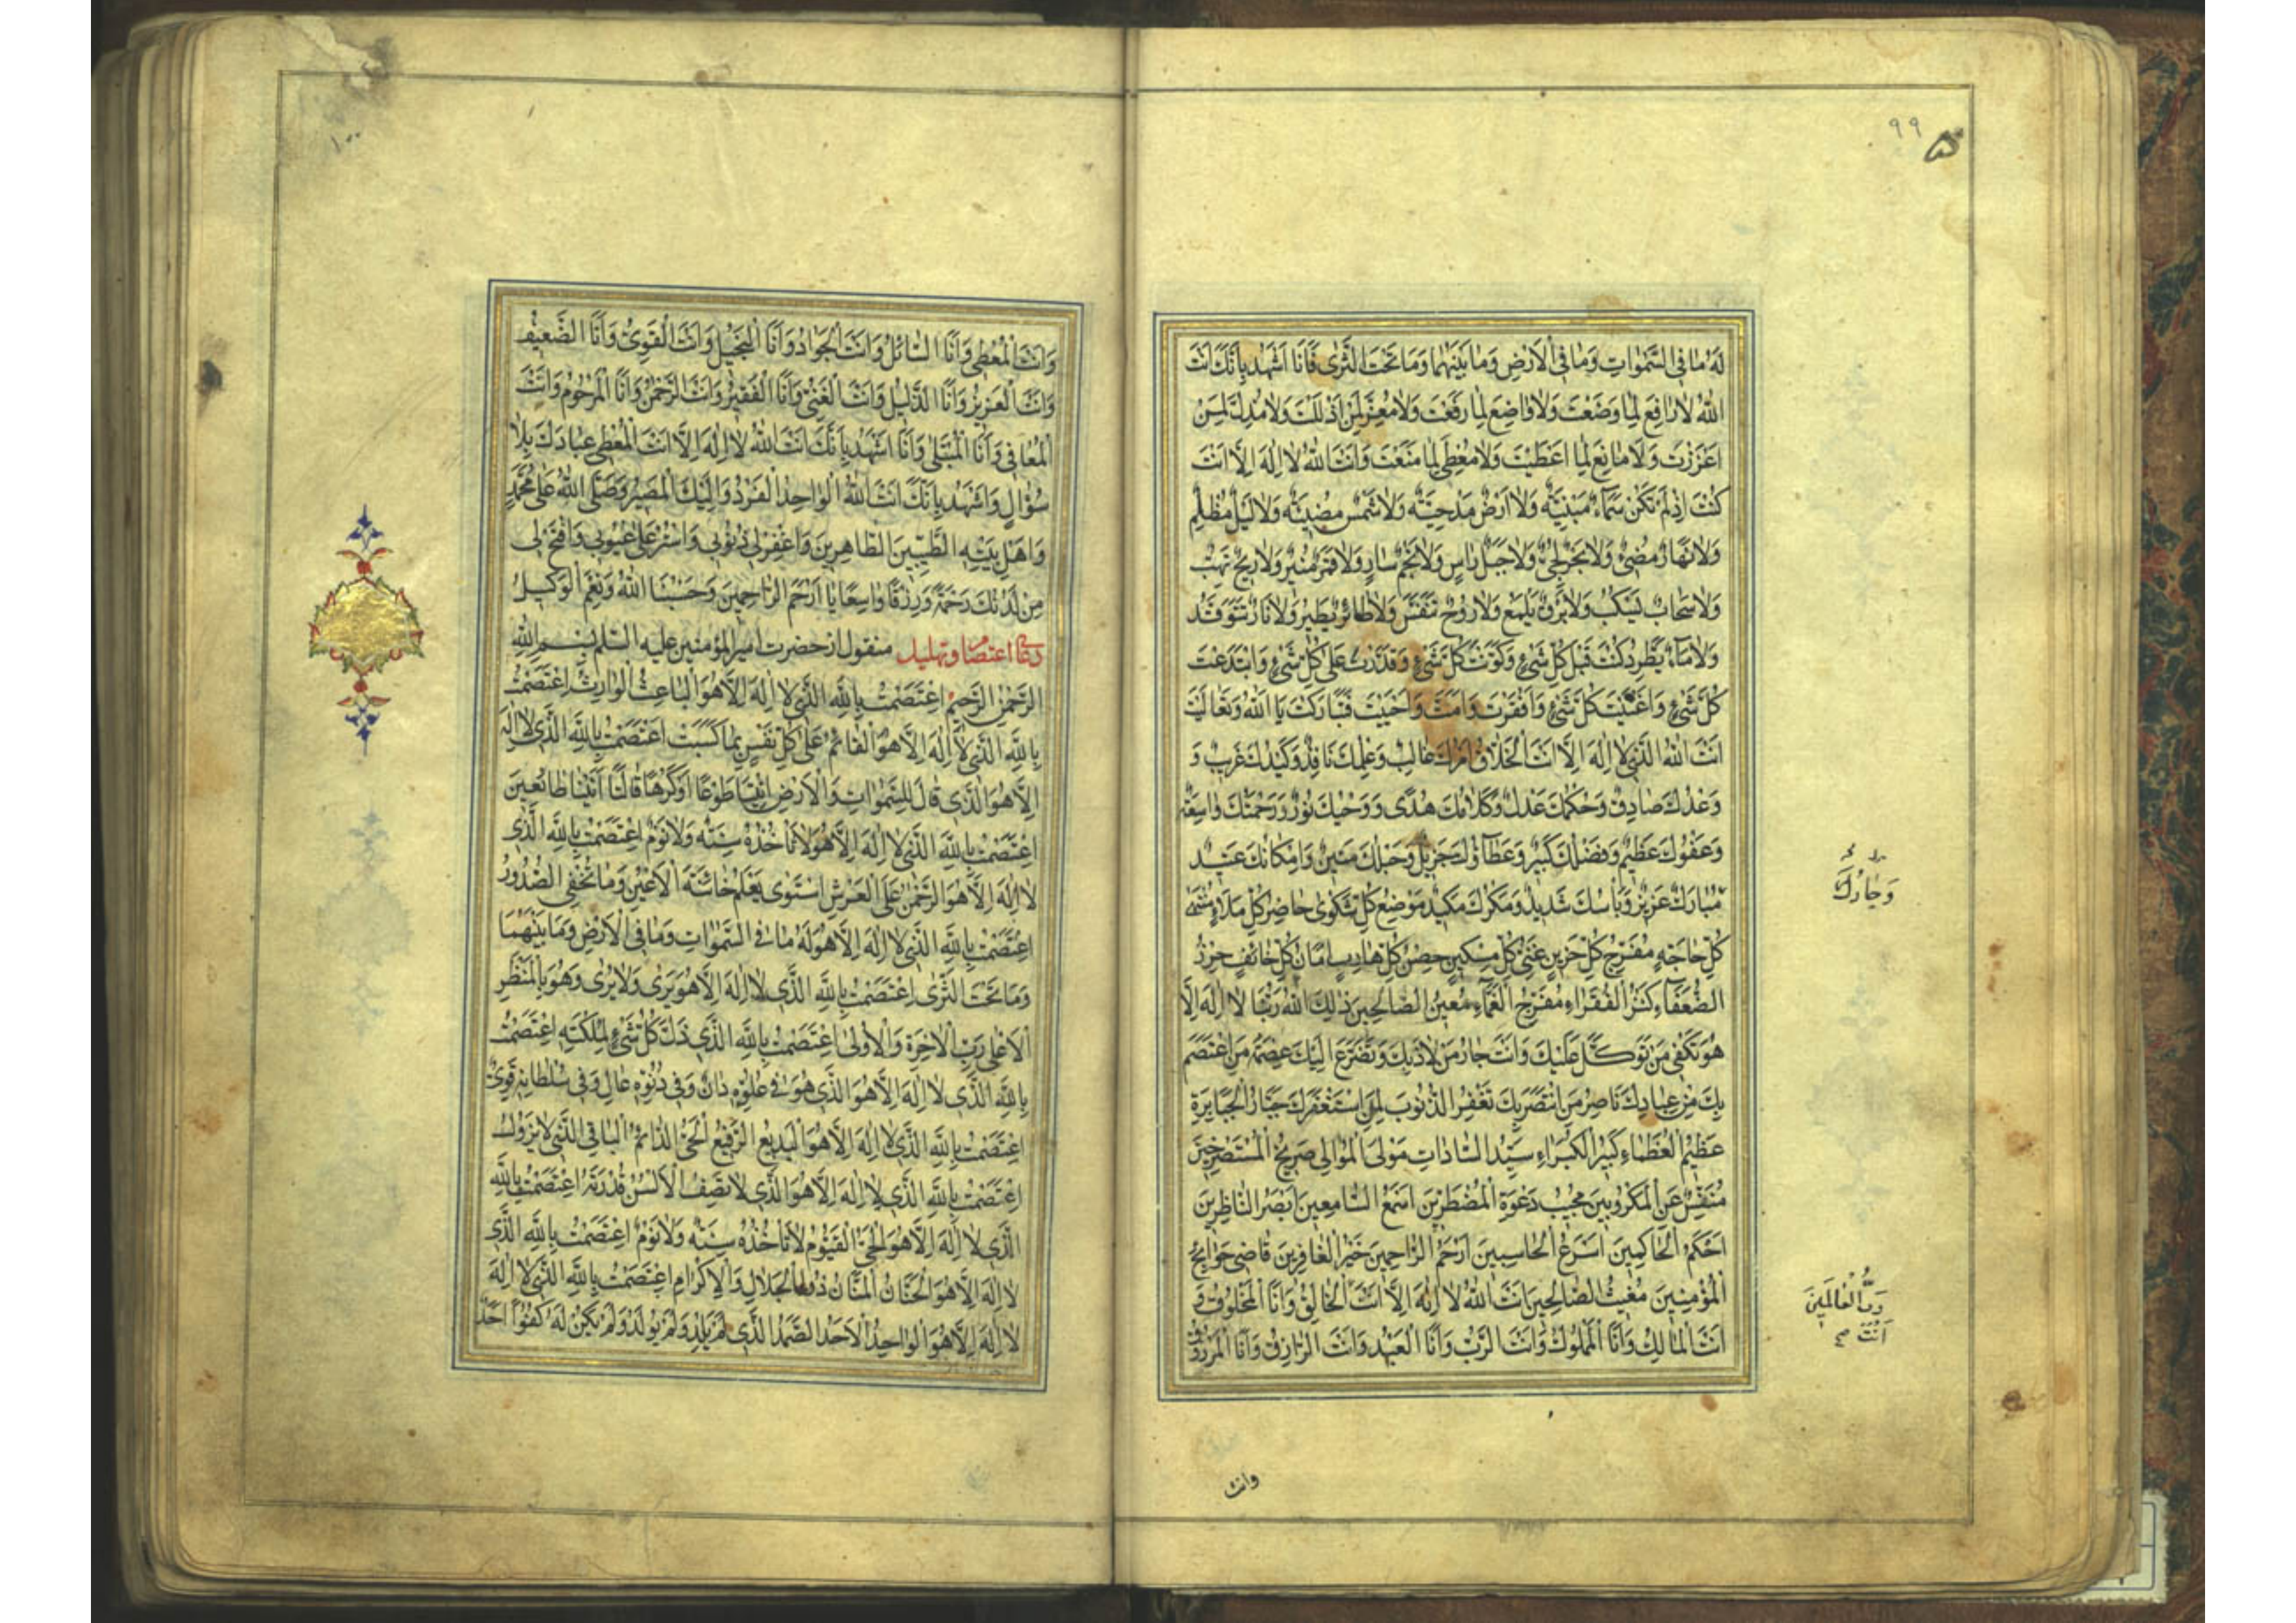 ٩٩
لَهُ مَا فِى السَّمٰوَاتِ وَمَا فِى الْاَرْضِ وَمَا بَيْنَهُمَا وَمَا تَحْتَ الثَّرٰى فَاَنَا اَشْهَدُ بِاَنَّكَ اَنْتَ
اللهُ لَا رَافِعَ لِمَا وَضَعْتَ وَلَا وَاضِعَ لِمَا رَفَعْتَ وَلَا مُعِزَّ لِمَنْ اَذْلَلْتَ وَلَا مُذِلَّ لِمَنْ
اَعْزَزْتَ وَلَا مَانِعَ لِمَا اَعْطَيْتَ وَلَا مُعْطِىَ لِمَا مَنَعْتَ وَاَنْتَ اللهُ لَا اِلٰهَ اِلَّا اَنْتَ
كُنْتَ اِذْ لَمْ تَكُنْ سَمَاءٌ مَبْنِيَّةٌ وَلَا اَرْضٌ مَدْحِيَّةٌ وَلَا شَمْسٌ مُضِيئَةٌ وَلَا لَيْلٌ مُظْلِمٌ
وَلَا نَهَارٌ مُضِىءٌ وَلَا بَحْرٌ لُجِّىٌّ وَلَا جَبَلٌ رَاسٍ وَلَا نَجْمٌ سَارٍ وَلَا قَمَرٌ مُنِيرٌ وَلَا رِيحٌ تَهُبُّ
وَلَا سَحَابٌ يَسْكُبُ وَلَا بَرْقٌ يَلْمَعُ وَلَا رُوحٌ تَنَفَّسُ وَلَا طَائِرٌ يَطِيرُ وَلَا نَارٌ تَتَوَقَّدُ
وَلَا مَاءٌ يَطَّرِدُ كُنْتَ قَبْلَ كُلِّ شَىْءٍ وَكَوَّنْتَ كُلَّ شَىْءٍ وَقَدَرْتَ عَلٰى كُلِّ شَىْءٍ وَابْتَدَعْتَ
كُلَّ شَىْءٍ وَاَغْنَيْتَ كُلَّ شَىْءٍ وَاَفْقَرْتَ وَاَمَتَّ وَاَحْيَيْتَ فَتَبَارَكْتَ يَا اَللهُ وَتَعَالَيْتَ
اَنْتَ اللهُ الَّذِى لَا اِلٰهَ اِلَّا اَنْتَ الْخَلَّاقُ اَمْرُكَ غَالِبٌ وَعِلْمُكَ نَافِذٌ وَكَيْدُكَ غَرِيبٌ وَ
وَعْدُكَ صَادِقٌ وَحُكْمُكَ عَدْلٌ وَكَلَامُكَ هُدًى وَوَحْيُكَ نُورٌ وَرَحْمَتُكَ وَاسِعَةٌ
وَعَفْوُكَ عَظِيمٌ وَفَضْلُكَ كَبِيرٌ وَعَطَاؤُكَ جَزِيلٌ وَحَبْلُكَ مَتِينٌ وَاِمْكَانُكَ عَتِيدٌ
وَجَارُكَ
عَزِيزٌ وَبَأْسُكَ شَدِيدٌ وَمَكْرُكَ مَكِيدٌ مَوْضِعُ كُلِّ شَكْوٰى حَاضِرُ كُلِّ مَلَاءٍ مُنْتَهٰى
كُلِّ حَاجَةٍ مُفَرِّجُ كُلِّ حَزِينٍ غِنٰى كُلِّ مِسْكِينٍ حِصْنُ كُلِّ هَارِبٍ اَمَانُ كُلِّ خَائِفٍ حِرْزُ
الضُّعَفَاءِ كَنْزُ الْفُقَرَاءِ مُفَرِّجُ الْغَمَّاءِ مُعِينُ الصَّالِحِينَ ذٰلِكَ اللهُ رَبُّنَا لَا اِلٰهَ اِلَّا
هُوَ تَكْفِى مَنْ تَوَكَّلَ عَلَيْكَ وَاَنْتَ جَارُ مَنْ لَاذَ بِكَ وَتَضَرَّعَ اِلَيْكَ عِصْمَةُ مَنِ اعْتَصَمَ
بِكَ مِنْ عِبَادِكَ نَاصِرُ مَنِ انْتَصَرَ بِكَ تَغْفِرُ الذُّنُوبَ لِمَنِ اسْتَغْفَرَكَ جَبَّارُ الْجَبَابِرَةِ
عَظِيمُ الْعُظَمَاءِ كَبِيرُ الْكُبَرَاءِ سَيِّدُ السَّادَاتِ مَوْلَى الْمَوَالِى صَرِيخُ الْمُسْتَصْرِخِينَ
مُنَفِّسٌ عَنِ الْمَكْرُوبِينَ مُجِيبُ دَعْوَةِ الْمُضْطَرِّينَ اَسْمَعُ السَّامِعِينَ اَبْصَرُ النَّاظِرِينَ
اَحْكَمُ الْحَاكِمِينَ اَسْرَعُ الْحَاسِبِينَ اَرْحَمُ الرَّاحِمِينَ خَيْرُ الْغَافِرِينَ قَاضِى حَوَائِجِ
الْمُؤْمِنِينَ مُغِيثُ الصَّالِحِينَ اَنْتَ اللهُ لَا اِلٰهَ اِلَّا اَنْتَ الْخَالِقُ وَاَنَا الْمَخْلُوقُ وَ
رَبُّ الْعَالَمِينَ
اَنْتَ صح
اَنْتَ الْمَالِكُ وَاَنَا الْمَمْلُوكُ وَاَنْتَ الرَّبُّ وَاَنَا الْعَبْدُ وَاَنْتَ الرَّازِقُ وَاَنَا الْمَرْزُوقُ
وانت
١٠٠
وَاَنْتَ الْمُعْطِى وَاَنَا السَّائِلُ وَاَنْتَ الْجَوَادُ وَاَنَا الْبَخِيلُ وَاَنْتَ الْقَوِىُّ وَاَنَا الضَّعِيفُ
وَاَنْتَ الْعَزِيزُ وَاَنَا الذَّلِيلُ وَاَنْتَ الْغَنِىُّ وَاَنَا الْفَقِيرُ وَاَنْتَ الرَّحْمٰنُ وَاَنَا الْمَرْحُومُ وَاَنْتَ
الْمُعَافِى وَاَنَا الْمُبْتَلٰى وَاَنَا اَشْهَدُ بِاَنَّكَ اَنْتَ اللهُ لَا اِلٰهَ اِلَّا اَنْتَ الْمُعْطِى عِبَادَكَ بِلَا
سُؤَالٍ وَاَشْهَدُ بِاَنَّكَ اَنْتَ اللهُ الْوَاحِدُ الْفَرْدُ وَاِلَيْكَ الْمَصِيرُ وَصَلَّى اللهُ عَلٰى مُحَمَّدٍ
وَاَهْلِ بَيْتِهِ الطَّيِّبِينَ الطَّاهِرِينَ وَاغْفِرْ لِى ذُنُوبِى وَاسْتُرْ عَلَىَّ عُيُوبِى وَافْتَحْ لِى
مِنْ لَدُنْكَ رَحْمَةً وَرِزْقًا وَاسِعًا يَا اَرْحَمَ الرَّاحِمِينَ وَحَسْبُنَا اللهُ وَنِعْمَ الْوَكِيلُ
دعاء اعتصام وتهليل منقول از حضرت امير المؤمنين عليه السلم بِسْمِ اللهِ
الرَّحْمٰنِ الرَّحِيمِ اِعْتَصَمْتُ بِاللهِ الَّذِى لَا اِلٰهَ اِلَّا هُوَ الْبَاعِثُ الْوَارِثُ اِعْتَصَمْتُ
بِاللهِ الَّذِى لَا اِلٰهَ اِلَّا هُوَ الْقَائِمُ عَلٰى كُلِّ نَفْسٍ بِمَا كَسَبَتْ اِعْتَصَمْتُ بِاللهِ الَّذِى لَا اِلٰهَ
اِلَّا هُوَ الَّذِى قَالَ لِلسَّمٰوَاتِ وَالْاَرْضِ ائْتِيَا طَوْعًا اَوْ كَرْهًا قَالَتَا اَتَيْنَا طَائِعِينَ
اِعْتَصَمْتُ بِاللهِ الَّذِى لَا اِلٰهَ اِلَّا هُوَ لَا تَأْخُذُهُ سِنَةٌ وَلَا نَوْمٌ اِعْتَصَمْتُ بِاللهِ الَّذِى
لَا اِلٰهَ اِلَّا هُوَ الرَّحْمٰنُ عَلَى الْعَرْشِ اسْتَوٰى يَعْلَمُ خَائِنَةَ الْاَعْيُنِ وَمَا تُخْفِى الصُّدُورُ
اِعْتَصَمْتُ بِاللهِ الَّذِى لَا اِلٰهَ اِلَّا هُوَ لَهُ مَا فِى السَّمٰوَاتِ وَمَا فِى الْاَرْضِ وَمَا بَيْنَهُمَا
وَمَا تَحْتَ الثَّرٰى اِعْتَصَمْتُ بِاللهِ الَّذِى لَا اِلٰهَ اِلَّا هُوَ يَرٰى وَلَا يُرٰى وَهُوَ بِالْمَنْظَرِ
الْاَعْلٰى رَبِّ الْاٰخِرَةِ وَالْاُولٰى اِعْتَصَمْتُ بِاللهِ الَّذِى ذَلَّ كُلُّ شَىْءٍ لِمُلْكَتِهِ اِعْتَصَمْتُ
بِاللهِ الَّذِى لَا اِلٰهَ اِلَّا هُوَ الَّذِى هُوَ فِى عُلُوِّهِ دَانٍ وَفِى دُنُوِّهِ عَالٍ وَفِى سُلْطَانِهِ قَوِىٌّ
اِعْتَصَمْتُ بِاللهِ الَّذِى لَا اِلٰهَ اِلَّا هُوَ الْبَدِيعُ الرَّفِيعُ الْحَىُّ الدَّائِمُ الْبَاقِى الَّذِى لَا يَزُولُ
اِعْتَصَمْتُ بِاللهِ الَّذِى لَا اِلٰهَ اِلَّا هُوَ الَّذِى لَا تَصِفُ الْاَلْسُنُ قُدْرَتَهُ اِعْتَصَمْتُ بِاللهِ
الَّذِى لَا اِلٰهَ اِلَّا هُوَ الْحَىُّ الْقَيُّومُ لَا تَأْخُذُهُ سِنَةٌ وَلَا نَوْمٌ اِعْتَصَمْتُ بِاللهِ الَّذِى
لَا اِلٰهَ اِلَّا هُوَ الْحَنَّانُ الْمَنَّانُ ذُو الْجَلَالِ وَالْاِكْرَامِ اِعْتَصَمْتُ بِاللهِ الَّذِى لَا اِلٰهَ
لَا اِلٰهَ اِلَّا هُوَ الْوَاحِدُ الْاَحَدُ الصَّمَدُ الَّذِى لَمْ يَلِدْ وَلَمْ يُولَدْ وَلَمْ يَكُنْ لَهُ كُفُوًا اَحَدٌ